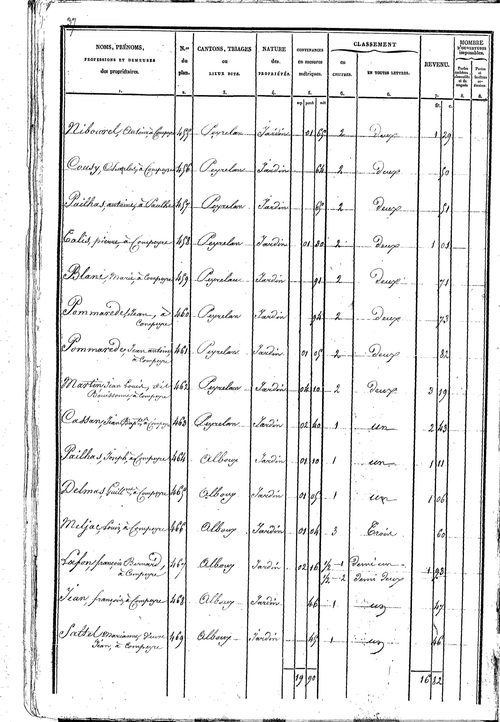 27
NOMS, PRÉNOMS, PROFESSIONS ET DEMEURES des propriétaires. N.os du plan. CANTONS, TRIAGES ou LIEUX DITS. NATURE des PROPRIÉTÉS. CONTENANCES en mesures métriques. CLASSEMENT en CHIFFRES. EN TOUTES LETTRES. REVENU. NOMBRE D'OUVERTURES imposables.
1. 2. 3. 4. 5. 6. 6. 7. 8. 8.
fr. c.
Antoine, à Compeyre 455 Peyrelan Jardin 01 65 2 deux 1 29
Cousy, Charles, à Compeyre 456 Peyrelan Jardin 64 2 deux 50
Pailhas, antoine, à 457 Peyrelan Jardin 65 2 deux 51
Calis, pierre, à Compeyre 458 Peyrelan Jardin 01 30 2 deux 1 01
Blanc, Marie, à Compeyre 459 Peyrelan Jardin 91 2 deux 71
Pommarede, Jean, à 460 Peyrelan Jardin 94 2 deux 73
Compeyre
Pommarede, Jean antoine 461 Peyrelan Jardin 01 05 2 deux 82
à Compeyre
Martin, Jean Louis, dit 462 Peyrelan Jardin 04 10 2 deux 3 19
à Compeyre
Cassan, Jean Bap.te à Compeyre 463 Peyrelan Jardin 02 40 1 un 2 43
Pailhas, Joseph, à Compeyre 464 Albouy Jardin 01 10 1 un 1 11
Delmas, à Compeyre 465 Albouy Jardin 01 05 1 un 1 06
Meljac, Louis, à Compeyre 466 Albouy Jardin 01 04 3 Trois 60
Lafon, françois Bernard, 467 Albouy Jardin 02 16 1/2 - 1 demi un 1 93
à Compeyre 1/2 - 2 demi deux
Jean, françois, à Compeyre 468 Albouy Jardin 46 1 un 47
Sattel, Marianne, Veuve 469 Albouy Jardin 45 1 un 46
Jean, à Compeyre
19 90 16 82